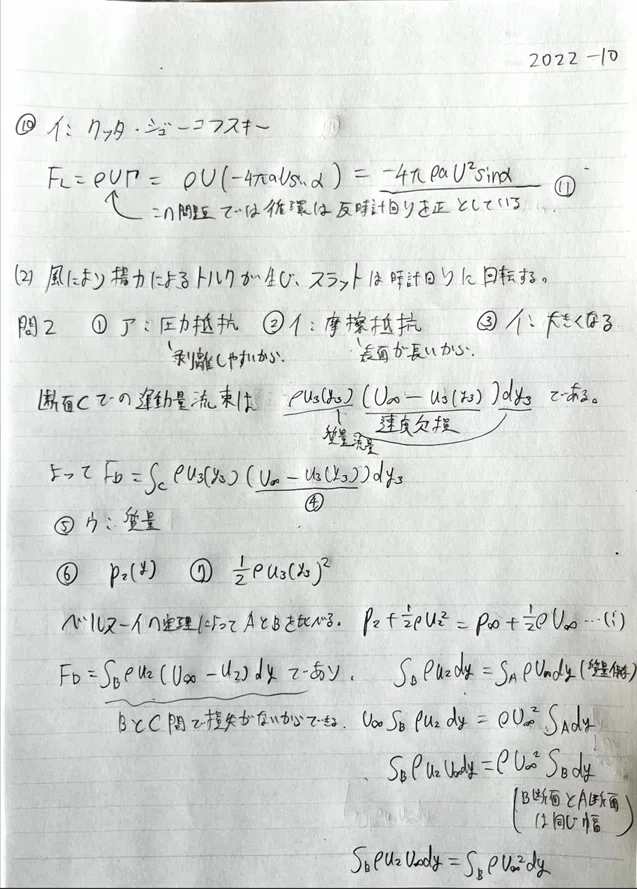 2022-10
⑩ イ:クッタ・ジューコフスキー
F_L = ρUΓ = ρU(-4πaUsinα) = -4πρaU²sinα ⑪
この問題では循環は反時計回りを正としている
(2) 風により揚力によるトルクが生じ、スラットは時計回りに回転する。
問2 ① ア:圧力抵抗 ② イ:摩擦抵抗 ③ イ:大きくなる
剥離しやすいから. 表面が長いから.
断面Cでの運動量流束は ρu₃(y₃) (U∞ - u₃(y₃)) dy₃ である。
質量流量 速度欠損
よって F_D = ∫_C ρu₃(y₃) (U∞ - u₃(y₃)) dy₃
④
⑤ ウ:質量
⑥ p₂(y) ⑦ 1/2 ρu₃(y₃)²
ベルヌーイの定理によってAとBを比べる。 p₂ + 1/2 ρu₂² = p∞ + 1/2 ρU∞ …(i)
F_D = ∫_B ρu₂ (U∞ - u₂) dy であり、 ∫_B ρu₂ dy = ∫_A ρU∞ dy (質量保存)
BとC間で損失がないからできる. U∞ ∫_B ρu₂ dy = ρU∞² ∫_A dy
∫_B ρu₂ U∞ dy = ρU∞² ∫_B dy
(B断面とA断面
は同じ幅)
∫_B ρu₂ U∞ dy = ∫_B ρU∞² dy